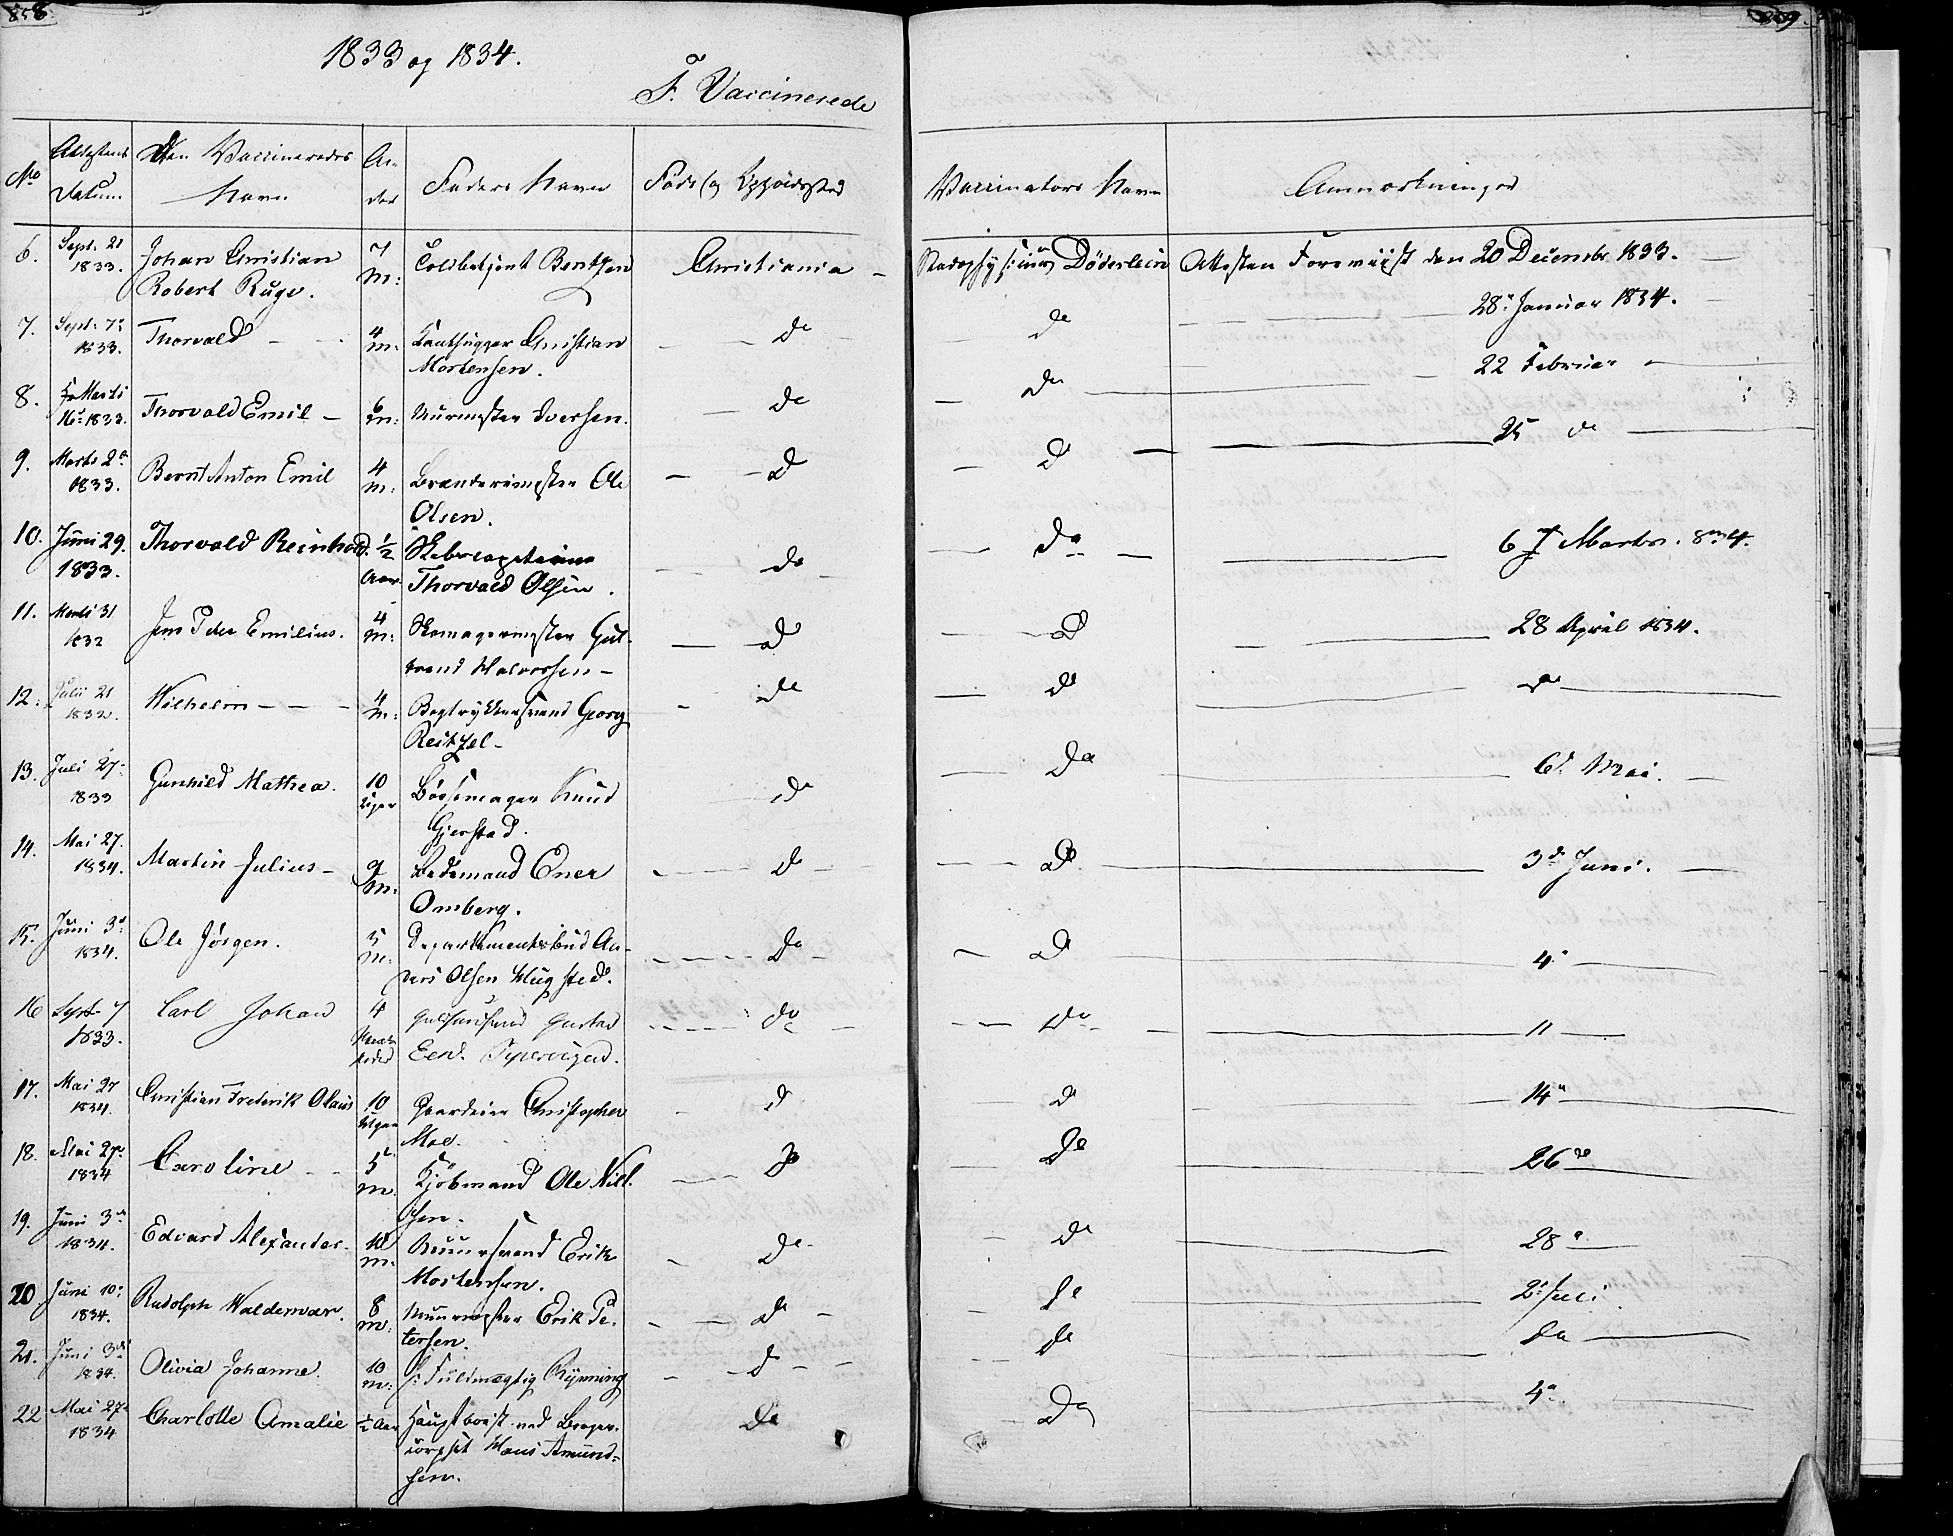 858.
1833 og 1834.
F. Vaccinerede
No
Attestens Datum.
Den Vaccineredes Navn
Al-
der
Faders Navn
Føde og Opholdssted
Vaccinators Navn
Anmærkninger
6. Sept. 21 1833. Johan Christian Robert Ruge. 7 M: Toldbetjent Bentzen Christiania - Stadsphysicus Døderlein Attesten Foreviist den 20 December 1833.
7. Sept. 7 1833. Thorvald 4 M: Christian Mortensen. do do 28 Januar 1834.
8. Marti 16 1833. Thorvald Emil - 6 M: Muurmester Iversen. do do 22 Februar
9. Marts 2 1833. Bernt Anton Emil 4 M: Ole Olsen. do do 25 do
10. Juni 29. 1833. Thorvald Reinhard. 1/2 Aar. Thorvald Olsen. do do 6 Marts.
11. Marti 31 1832 Jens Peder Emilius. 4 M: Skomagermester Gul-
brand Halvorsen - do do 28 April 1834.
12. Julii 21 1832. Wilhelm - - - 4 M: Bogtrykkersvend Georg Reitzel - do do do
13. Juli 27 1833 Gunhild Mathea. 10 Uger Bøssemager Knud Gjerstad. do do 6 Mai.
14. Mai 27. 1834. Martin Julius - 9 M: Bedemand Ener Omberg. do do 3d Juni.
15. Juni 3d 1834. Ole Jørgen. 5 M: Departementsbud An-
ders Olsen do do 4
16 Sept. 7 1833. Carl Johan 4 Gustav do do 11
17. Mai 27 1834. Christian Frederik Olaus 10 Uger Gaardeier Christopher Moe. do do 14
18. Mai 27 1834 Caroline 5 M. Kjøbmand Ole Nil-
sen. do do 26
19. Juni 3d 1834. Edvard Alexander. 10 M. Muursvend Erik Mortensen. do do 28
20 Juni 10 1834. Rudolph Waldemar. 8 M. Muurmester Erik Pe-
tersen. do do 2 Juli
21. Juni 3d 1834. Olivia Johanne. 10 M: Fuldmægtig Rynning do do do
22 Mai 27 1834 Charlotte Amalie 1/2 Aar Hautboist ved Borger-
corpset Hans Amund-
sen. do do 4